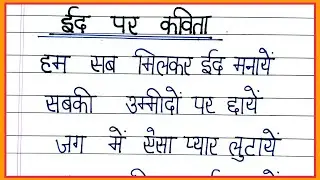 ईद पर कविता
हम सब मिलकर ईद मनायें
सबकी उम्मीदों पर छायें
जग में ऐसा प्यार लुटायें